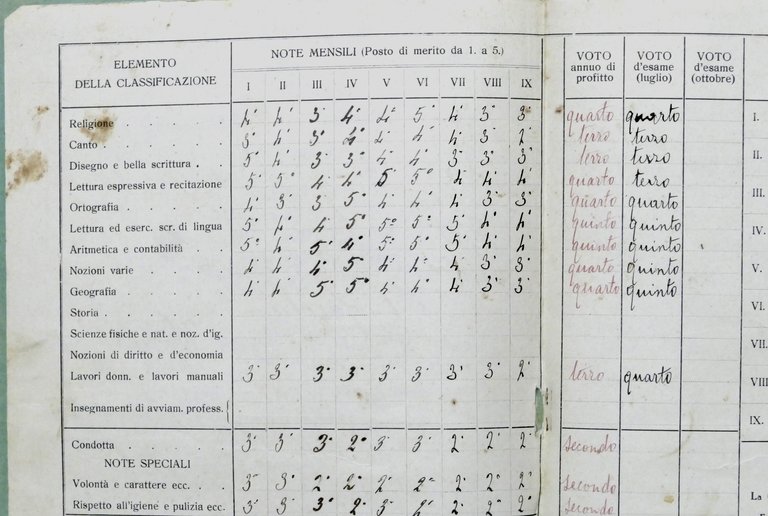 ELEMENTO DELLA CLASSIFICAZIONE
NOTE MENSILI (Posto di merito da 1. a 5.)
VOTO annuo di profitto
VOTO d'esame (luglio)
VOTO d'esame (ottobre)
I II III IV V VI VII VIII IX
Religione . . . . 4 4 3 4 4 5 4 3 3 quarto quarto I.
Canto . . . . . 3 4 3 4 4 4 4 3 2 terzo terzo
Disegno e bella scrittura . 5 4 3 3 4 4 3 3 3 terzo terzo II.
Lettura espressiva e recitazione 5 5 4 4 5 5 4 4 4 quarto terzo
Ortografia . . . . 4 3 3 5 4 4 4 3 3 quarto quarto III.
Lettura ed eserc. scr. di lingua 5 4 4 5 5 5 5 4 4 quinto quinto IV.
Aritmetica e contabilità . 5 4 5 4 5 5 5 4 4 quinto quinto
Nozioni varie . . . . 4 4 4 5 4 4 4 3 3 quarto quinto V.
Geografia . . . . . 4 4 5 5 4 4 4 3 3 quarto quinto
Storia . . . . . . VI.
Scienze fisiche e nat. e noz. d'ig.
Nozioni di diritto e d'economia VII.
Lavori donn. e lavori manuali 3 3 3 3 3 3 3 3 2 terzo quarto VIII
Insegnamenti di avviam. profess. IX.
Condotta . . . . . 3 3 3 2 3 3 2 2 2 secondo
NOTE SPECIALI
Volontà e carattere ecc. . . 3 3 2 2 2 2 2 2 2 secondo La
Rispetto all'igiene e pulizia ecc. 3 3 3 2 3 2 2 2 2 secondo